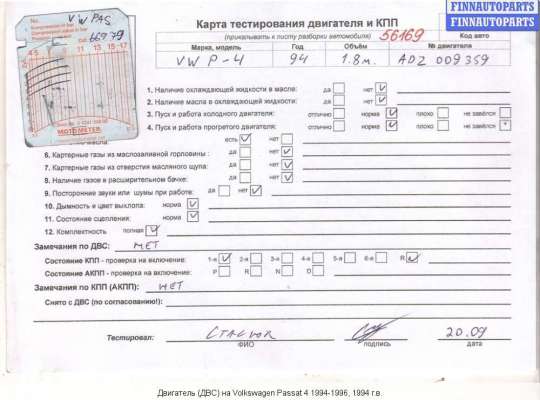 FINNAUTOPARTS
FINNAUTOPARTS
FINNAUTOPARTS
VW PAS
66979
4-5 11 13 15 17
MOTOMETER
Карта тестирования двигателя и КПП
(прикалывать к листу разборки автомобиля) 56169 Код авто
Марка, модель Год Объём № двигателя
VW P-4 94 1.8м. ADZ 009359
1. Наличие охлаждающей жидкости в масле: да нет
2. Наличие масла в охлаждающей жидкости: да нет
3. Пуск и работа холодного двигателя: отлично норма плохо не завёлся
4. Пуск и работа прогретого двигателя: отлично норма плохо не завёлся
есть нет
6. Картерные газы из маслозаливной горловины: да нет
7. Картерные газы из отверстия масляного щупа: да нет
8. Наличие газов в расширительном бачке: да нет
9. Посторонние звуки или шумы при работе: да нет
10. Дымность и цвет выхлопа: норма
11. Состояние сцепления: норма
12. Комплектность полная
Замечания по ДВС: НЕТ
Состояние КПП - проверка на включение: 1-я 2-я 3-я 4-я 5-я 6-я R
Состояние АКПП - проверка на включение: P R N D
Замечания по КПП (АКПП): НЕТ
Снято с ДВС (по согласованию!):
Тестировал: 20.09
ФИО подпись дата
Двигатель (ДВС) на Volkswagen Passat 4 1994-1996, 1994 г.в.